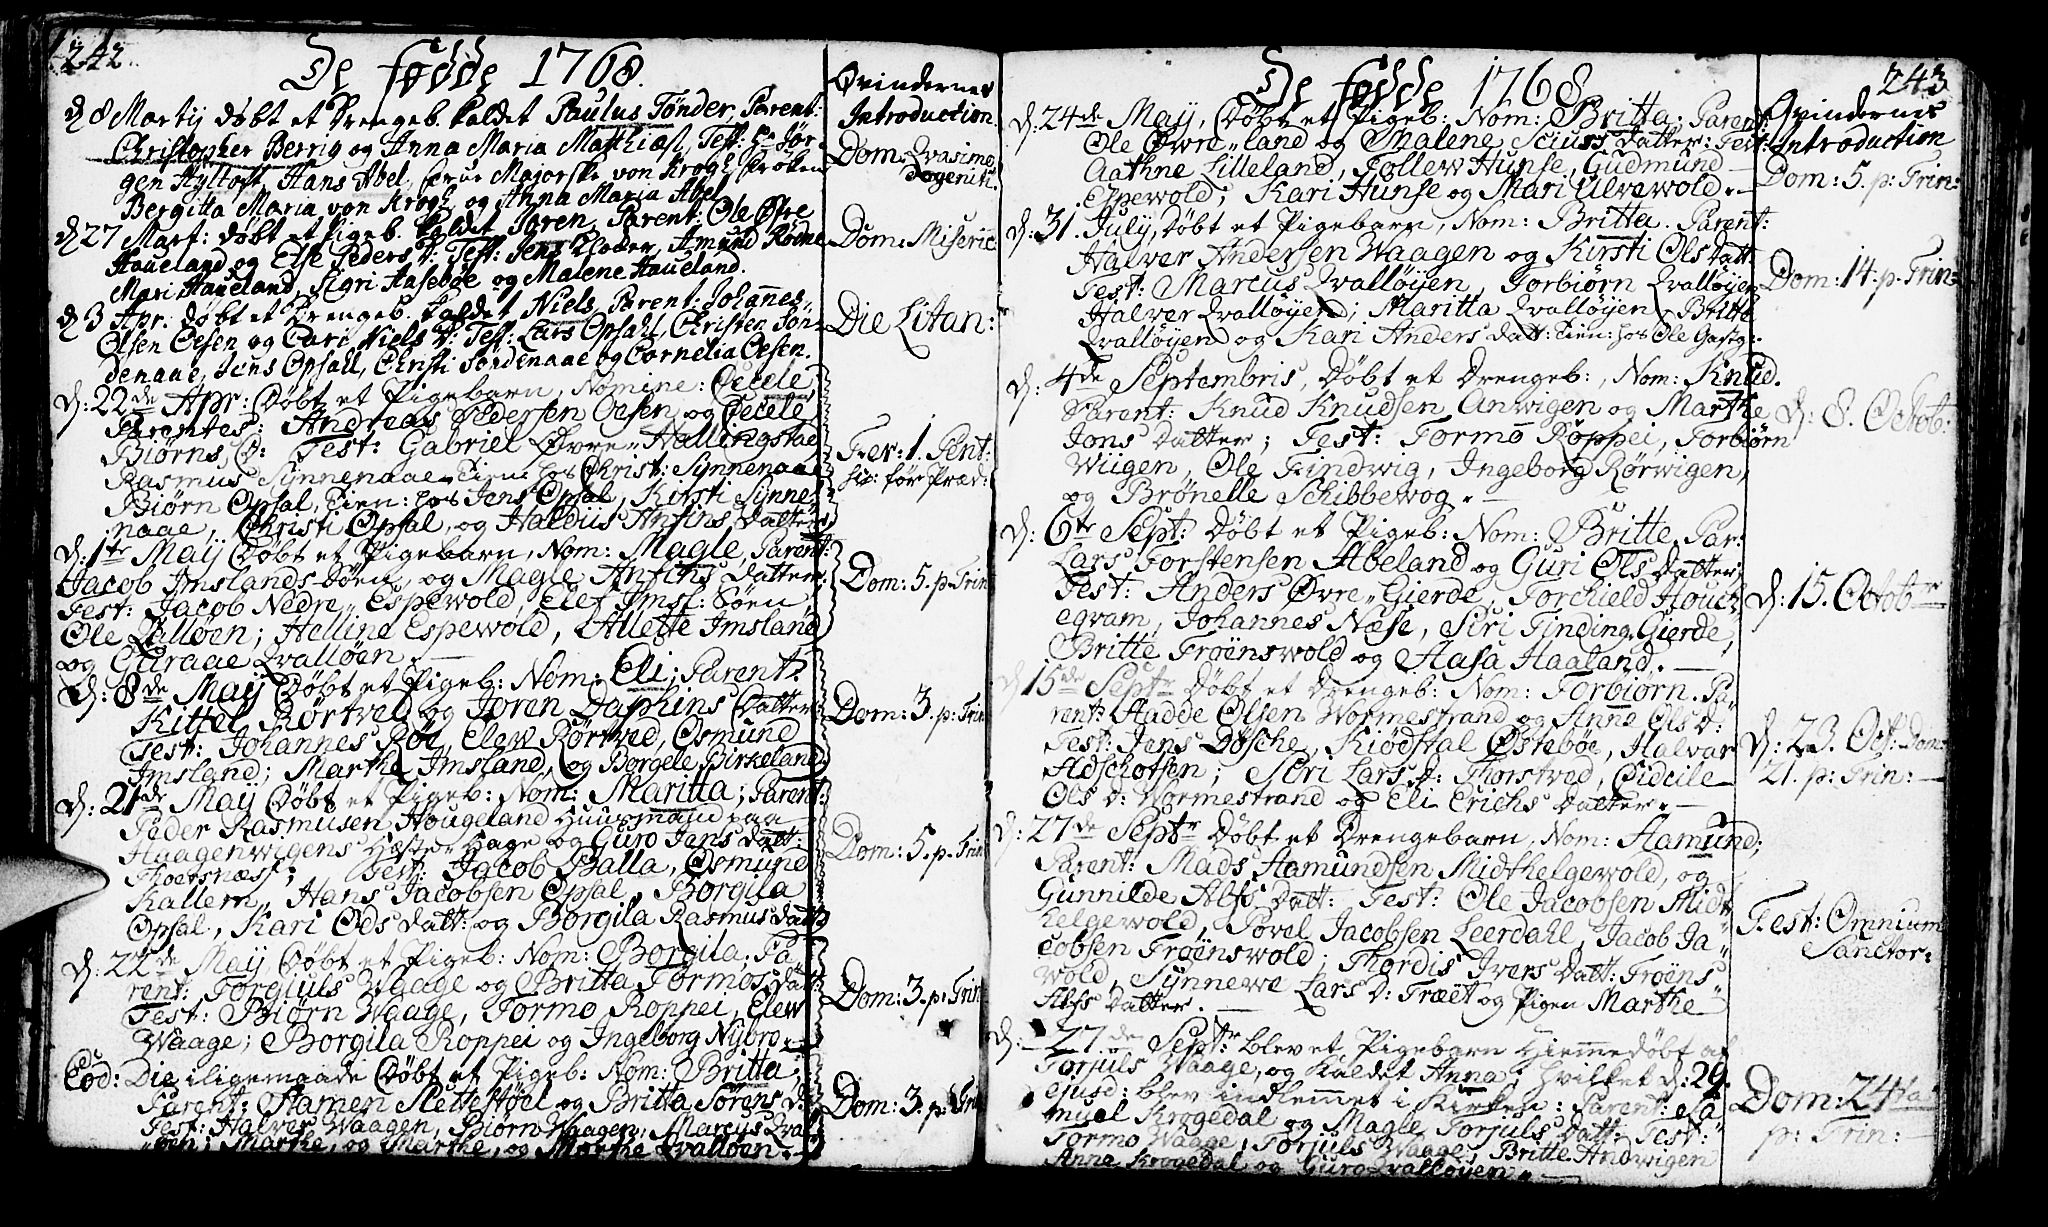 242.
De fødde 1768.
Qvindernes
Introduction
d 8 Martij døbt et Drengeb. kaldet Paulus Tønder, Parent:
Christopher Berrig og Anna Maria Matthiæs, Test: Hr Jør-
gen Hyltoft, Hans Abel, Frue Majorske von Krogh, Frøken
Bergitta Maria von Krogh og Anna Maria Abel.
Dom: Qvasimo
dogeniti.
d 27 Mart: døbt et Pigeb. kaldet Joren, Parent: Ole Øfre
Haueland og Else Peders D: Test: Jens Kloder, Amund Rødne
Mari Haueland, Sigri Aasebøe og Malene Haueland.
Dom: Miseric
d 3 Apr. døbt et Drengeb. kaldet Niels, Parent: Johannes
Olsen Oesen og Cari Niels D: Test: Lars Opsahl, Christen Søn-
denaae, Jens Opsall, Christi Søndenaae og Cornelia Oesen.
Die Litan:
d: 22de Apr: Døbt et Pigebarn, Nomine: Cecele
Parentes: Andreas Pedersen Oesen og Cecele
Biørns D: Test: Gabriel Øvre-Hellingstae,
Rasmus Synnenaae Tien: hos Christ: Synnenaae
Biørn Opsal, Tien: hos Jens Opsal, Kirsti Synne-
naae, Christi Opsal, og Haldiis Anfins Datter
Fer: 1. Pent:
hic: før Præd:
d: 1te Maij Døbt et Pigebarn, Nom: Magle, Parent:
Jacob Imslands Søen, og Magle Anfins Datter:
Test: Jacob Nedre-Espewold, Elef Imsl: Søen
Ole Qvalløen; Helline Espewold, Allette Imsland
og Guraae Qvalløen.
Dom: 5. p. Trin
d: 8de Maij Døbt et Pigeb: Nom: Eli; Parent:
Kittel Rørtved og Joren Daphins Datter
Test: Johannes Roe, Elew Rørtved, Osmund
Imsland; Marthe Imsland, og Borgele Birkeland
Dom: 3. p: Trin
d: 21de Maij Døbt et Pigeb: Nom: Maritta; Parent:
Peder Rasmusen Hougeland Huusmand paa
Haagenwigens Hæste-Hage og Guro Jens Datt:
Thoersnæs; Test: Jacob Balla, Osmund
Kallem, Hans Jacobsen Opsal, Borgila
Opsal, Kari Ods Datt: og Borgila Rasmus Datt:
Dom: 5. p. Trin
d: 22de Maij Døbt et Pigeb: Nom: Borgila, Pa-
rent: Torgiuls Waage og Britta Tormos Datt:
Test: Biørn Waage, Tormo Roppei, Elew
Waage; Borgila Roppei og Ingeborg Nybro.
Dom: 3. p: Trin
Eod: Die iligemaade Døbt et Pigeb: Nom: Britta
Parent: Aamen Slettestøel og Britta Sørens D:
Test: Halver Waagen, Biørn Waagen, Marcus Qval-
løen; Marthe, og Marthe, og Marthe Qvalløen.
Dom: 3. p: Trin
243
De fødde 1768
Qvindernes
Introduction
d: 24de Maij, Døbt et Pigeb: Nom: Britta; Parent
Ole Øvre-land og Malene Sciurs Datter: Test:
Aathne Lilleland, Tollew Hunse, Gudmund
Espewold; Kari Hunse og Mari Ulvewold.
Dom: 5. p: Trin:
d: 31. July, Døbt et Pigebarn, Nom: Britta. Parent:
Halver Andersen Waagen og Kirsti Ols Datt
Test: Marcus Qvalløyen, Torbiørn Qvalløyen
Halver Qvalløyen; Maritta Qvalløyen, Britte
Qvalløyen og Kari Anders Datt: Tien: hos Ole Gastg:
Dom: 14. p. Trin:
d: 4de Septembris, Døbt et Drengeb:, Nom: Knud.
Parent: Knud Knudsen Anwigen og Marthe
Jons Datter; Test: Tormo Roppei, Torbiørn
Wiigen, Ole Findwig, Ingeborg Rørwigen,
og Brønelle Schibbewog.
d: 8. Octob:
d: 6te Sept: Døbt et Pigeb: Nom: Britte. Par:
Lars Torstensen Abeland og Guri Ols Datter
Test: Anders Øvre-Gierde, Torchield Houch-
egvam, Johannes Næse, Siri Finding Gierde,
Britte Frøenswold og Aasa Haaland.
d: 15. Octobr
d 15de Septr Døbt et Drengeb: Nom: Torbiørn. Pa-
rent: Hadde Olsen Wormestrand og Anna Ols D:
Test: Jens Døsche, Kiødstal Østebøe, Halvar
Adschotsen; Siri Lars D: Thorstved, Cidcile
Ols D: Wormestrand og Eli Erichs Datter.
d: 23. Oct: Dom:
21. p: Trin:
d: 27de Septr Døbt et Drengebarn, Nom: Aamund;
Parent: Mads Aamundsen Midthelgewold, og
Gunnilde Alfs Datt: Test: Ole Jacobsen Midt-
helgewold, Povel Jacobsen Leerdahl, Jacob Ja-
cobsen Frøenswold; Thordis Ivers Datt: Frøens-
wold, Synnewe Lars D: Træet og Pigen Marthe
Alfs Datter.
Fest: Omnium
Sanctor:
d: 27de Septr blev et Pigebarn Hiemmedøbt af
Torjuls Waage, og kaldet Anna; Hvilket d: 29.
ejusd: blev indlemmet i Kirken: Parent: Sa-
muel Krogedal og Magle Torjuls Datt: Test:
Tormo Waage, Torjuls Waage, Britte Andwigen
Anna Krogedal og Guro Qvalløyen.
Dom: 24ta
p: Trin: